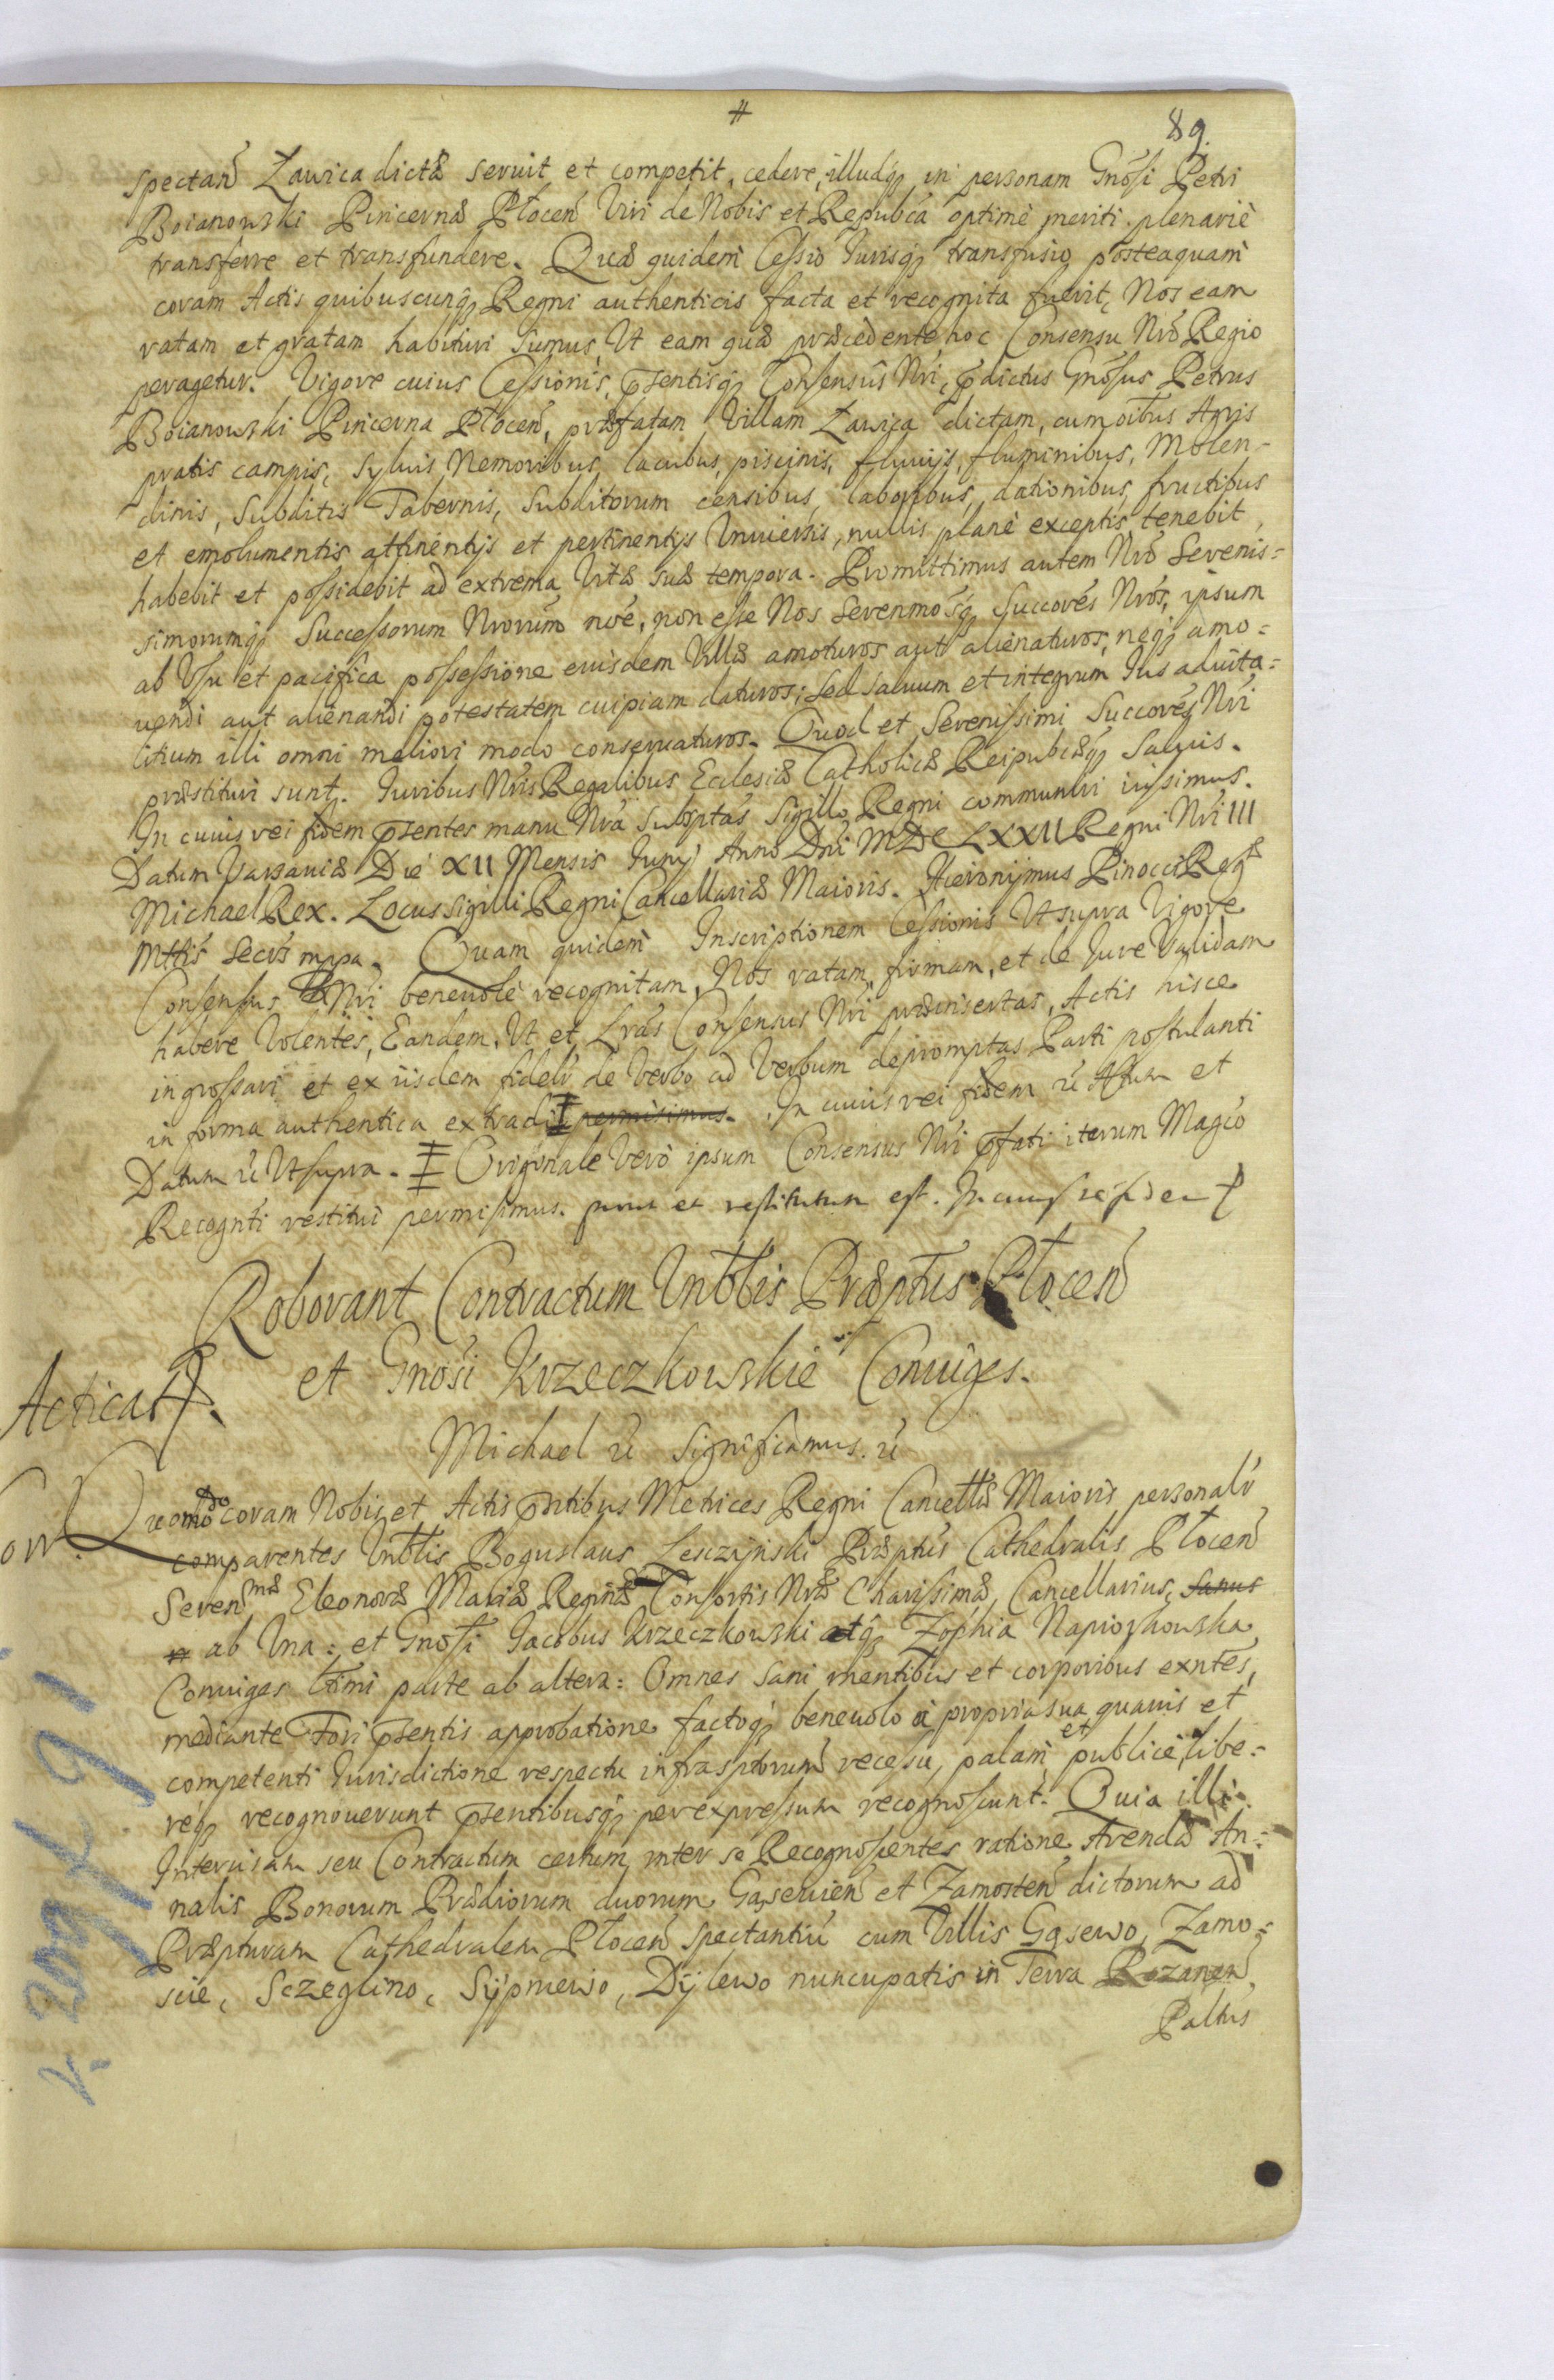 #
89.
spectan̄ Zawica dictæ seruit et competit, cedere, illudq̨ in personam Gnōsi Petri
Boianowski Pincernæ Płocen̄ Viri de Nobis et Repub̄ca optimè meriti plenariè
transferre et transfundere. Quæ quidem Cessio Iurisq̨ transfusio posteaquam
coram Actis quibuscunq̨ Regni authenticis facta et recognita fuerit, Nos eam
ratam et gratam habituri sumus, Ut eam quæ præcedente hoc Consensu Nr̄o Regio
peragetur. Vigore cuius Cessionis, p̄sentisq̨ Consensûs Nr̄i, p̄dictus Gnōsus Petrus
Boianowski Pincerna Płocen̄, præfatam Villam Zawica dictam, cum oībus Agris
pratis campis, syluis Nemoribus, lacubus, piscinis, fluuijs, fluminibus, Molen-
dinis, Subditis Tabernis, Subditorum censibus, laboribus, dationibus, fructibus
et emolumentis attinentijs et pertinentijs Vniuersis, nullis planè exceptis tenebit,
habebit et possidebit ad extrema Vitæ suæ tempora. Promittimus autem Nr̄o Serenis=
simorumq̨ Successorum Nrorum̄ nōe, non esse Nos Serenmōsq̨ Succorēs Nrōs, ipsum
ab Vsu et pacifica possessione euisdem Villæ amoturos aut alienaturos, neq̨ amo=
uendi aut alienandi potestatem cuipiam daturos; Sed saluum et integrum Ius aduita=
litium illi omni meliori modo conseruaturos. Quod et Serenissimi Succorēs Nr̄i
præstituri sunt. Iuribus Nr̄is Regalibus Ecclesiæ Catholicæ Reipub̄cæq̨ saluis.
In cuius rei fidem p̄sentes manu Nr̄a subsp̄tas Sigillo Regni communiri iussimus.
Datum Varsauiæ Die XII Mensis Iunij Anno Dn̄i MDCLXXII Regni Nr̄i III
Michael Rex. Locus sigilli Regni Cancellariæ Maioris. Hieronijmus Pinocci Regæ
Mttīs Secr̄s mppa. Quam quidem Inscriptionem Cessionis Vt supra Vigore
Consensus Nr̄i beneuolè recognitam, Nos ratam, firmam, et de Iure Validam
habere Volentes, Eandem, Vt et Lr̄as Consensus Nr̄i præinsertas, Actis hisce
ingrossari et ex iisdem fidelr̄ de Verbo ad Verbum depromptas Parti postulanti
in forma authentica extradi ‡ permisimus. In cuius rei fidem r̄c Actum et
Datum r̄c Vt supra. ‡ Originale Verò ipsum Consensus Nr̄i p̄fati iterum Magc̄o
Recognt̄i restitui permisimus. prout et restitutum est. In cuius rei fidem
Roborant Contractum Inbt̄lis Præptūs Płocen̄
et Gnosī Krzeczkowskie Coniuges.
Acticat
Michael r̄c Significamus. r̄c
Quomodo coram Nobis et Actis p̄ntibus Metrices Regni Cancellæ Maioris personalr̄
Corr.
comparentes Inbt̄lis Boguslaus Lesczijnski Præptūs Cathedralis Płocen̄
Serenmæ Eleonoræ Mariæ Reginæ Consortis Nræ Charissimæ, Cancellarius, sanus
ab Vna: et Gnosī Iacobus Krzeczkowski atq̨ Zophia Napiorkowska
Coniuges ltīmi parte ab altera: Omnes sani mentibus et corporibus exn̄tes,
mediante Fori p̄sentis approbatione, factoq̨ beneuolo à propria sua quauis et
competenti Iurisdictione respectu infrasptorum̄ recessu, palam et publicè libe=
req̨ recognouerunt p̄sentibusq̨ per expressum recognoscunt. Quia illi
Intercisam seu Contractum certum, inter se Recognoscentes ratione Arendæ An=
nalis Bonorum Prædiorum duorum Gąsewien̄ et Zamosten̄ dictorum ad
Præpturam Cathedralem Płocen̄ spectantiū cum Villis Gąsewo, Zamo=
scie, Sczeglino, Sijpniewo, Dijlewo nuncupatis in Terra Rozanen̄.
Paltus